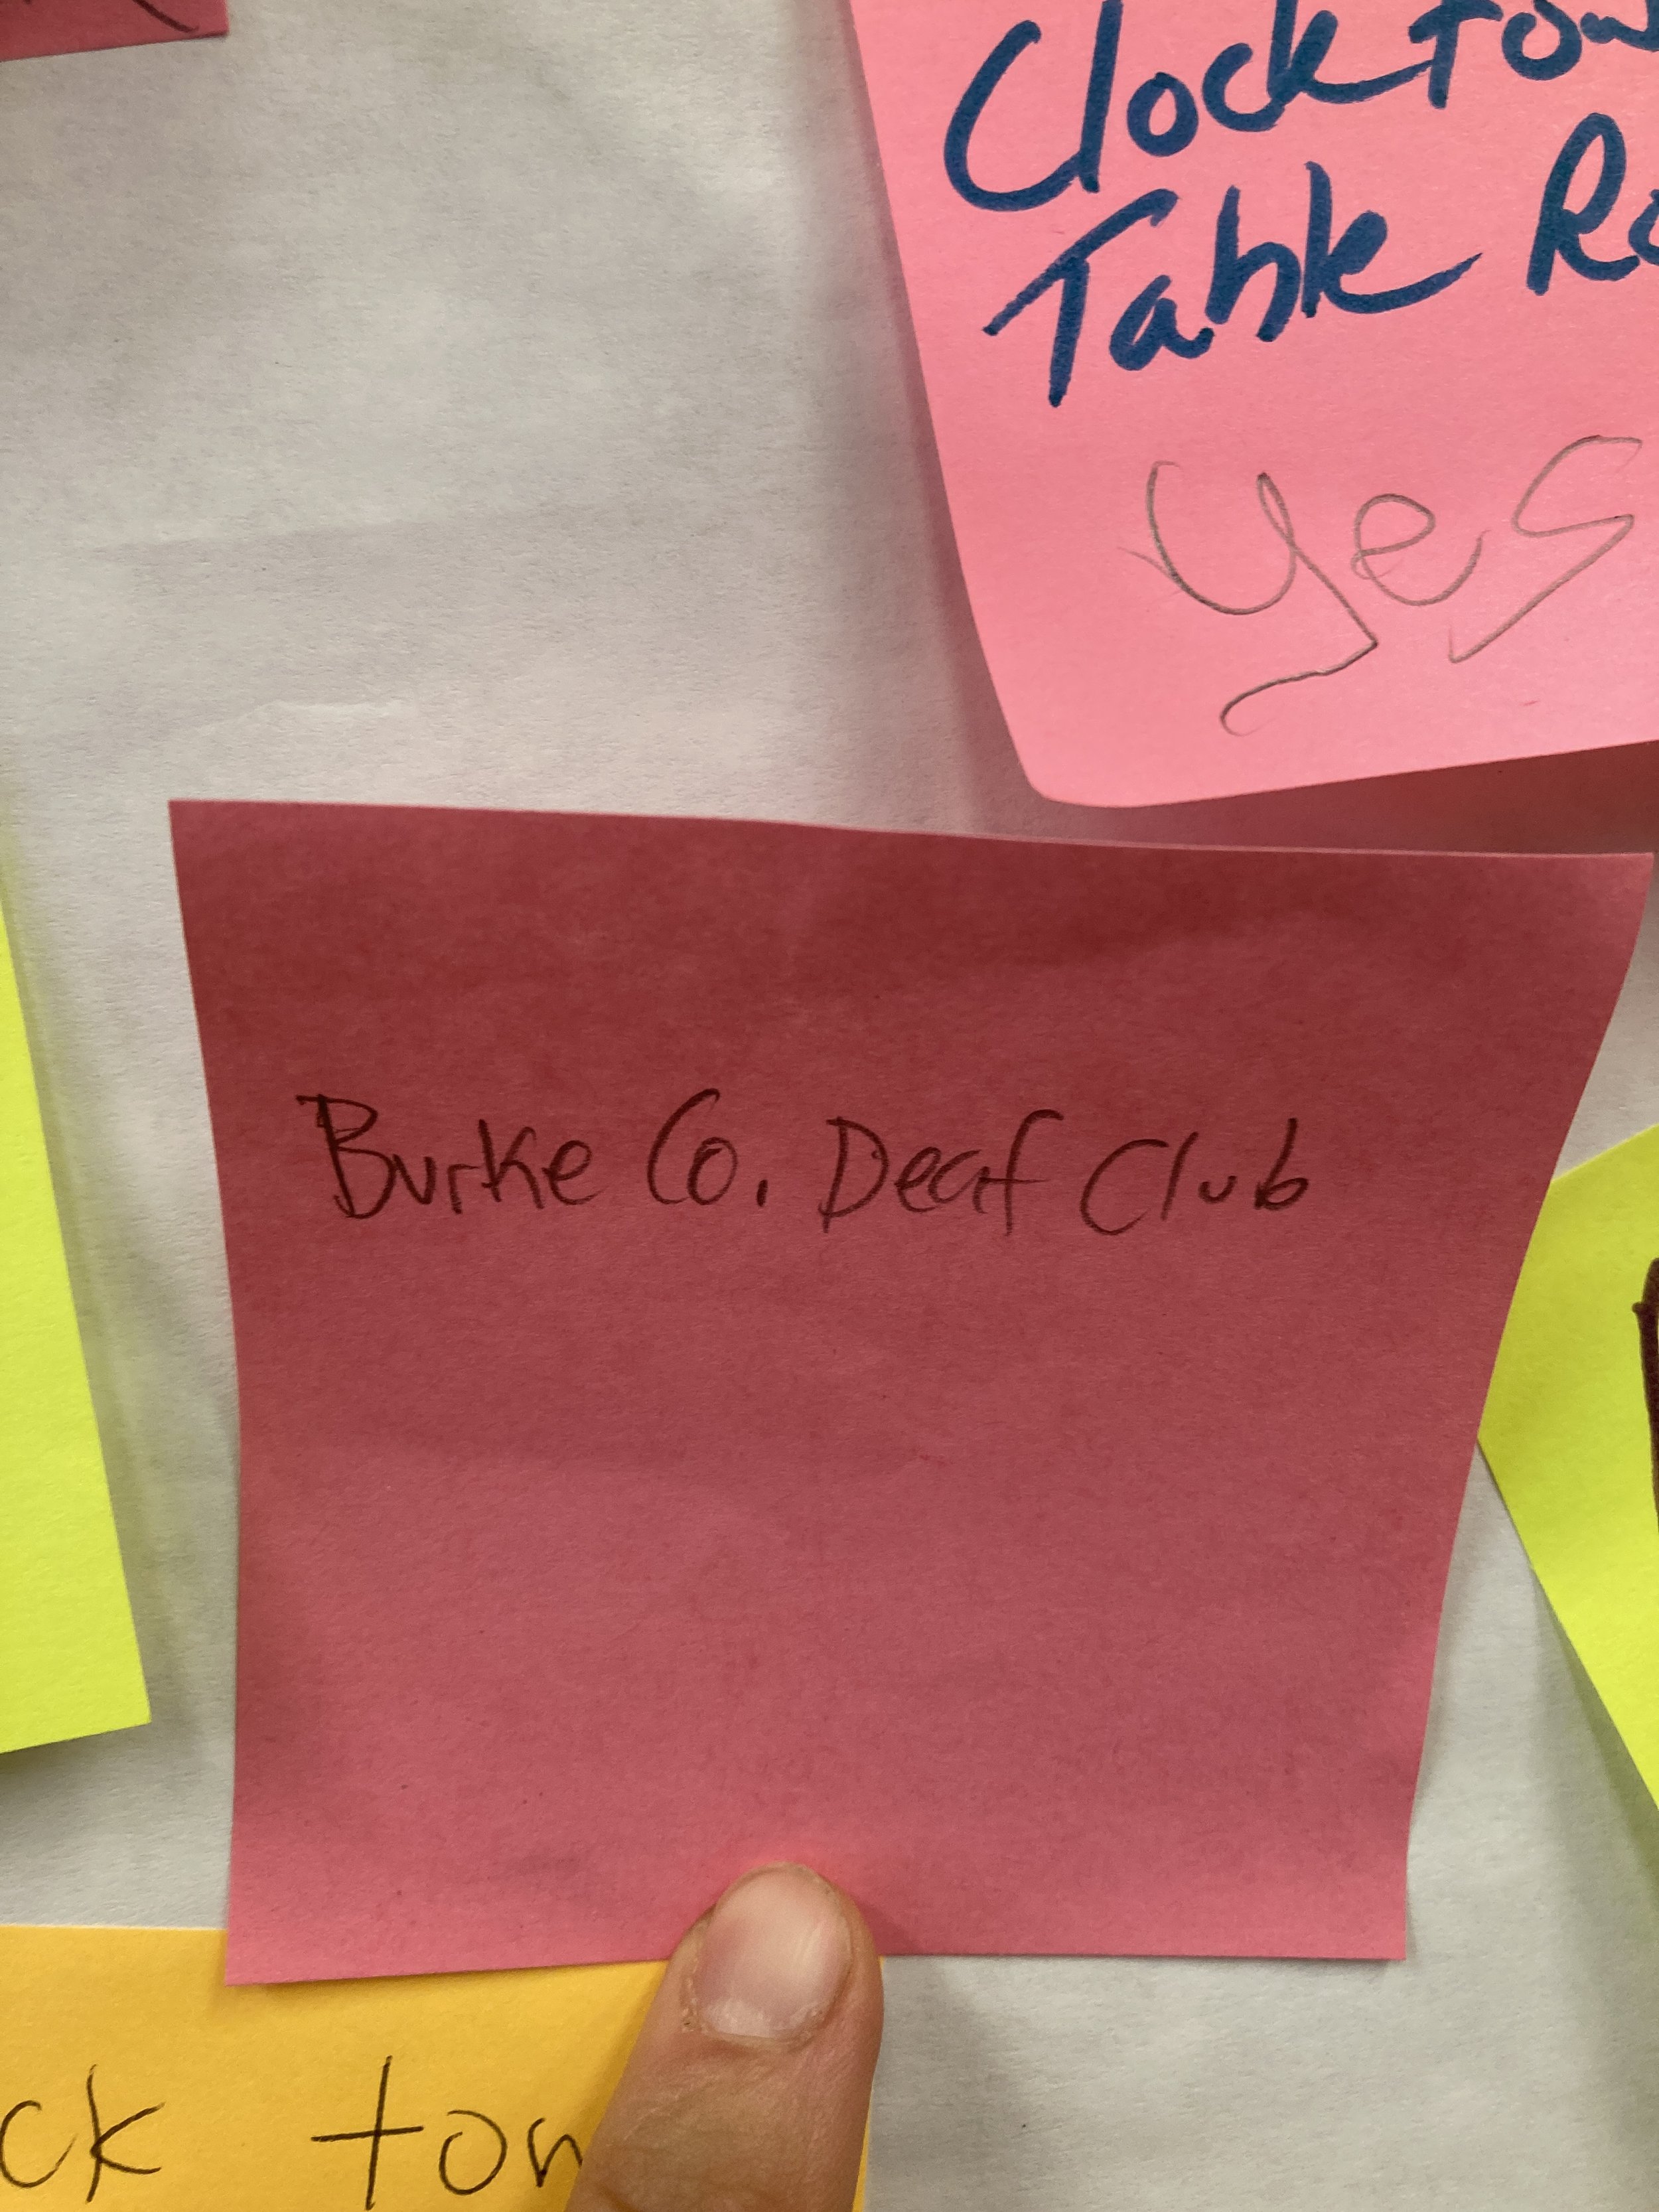 Clock tow
Table Ro
yes
Burke Co. Deaf Club
ck tow